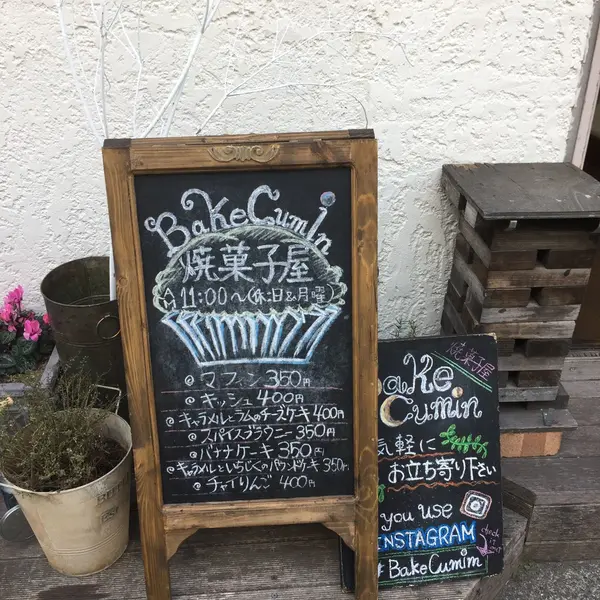 BakeCumin
焼菓子屋
11:00〜(休:日&月曜)
マフィン 350円
キッシュ 400円
キャラメルとラムのチーズケーキ 400円
スパイスブラウニー 350円
バナナケーキ 350円
キャラメルといちじくのパウンドケーキ 350円
チャイりんご 400円
焼菓子屋
ake
Cumin
気軽に
お立ち寄り下さい
you use
INSTAGRAM
check it out
#BakeCumim